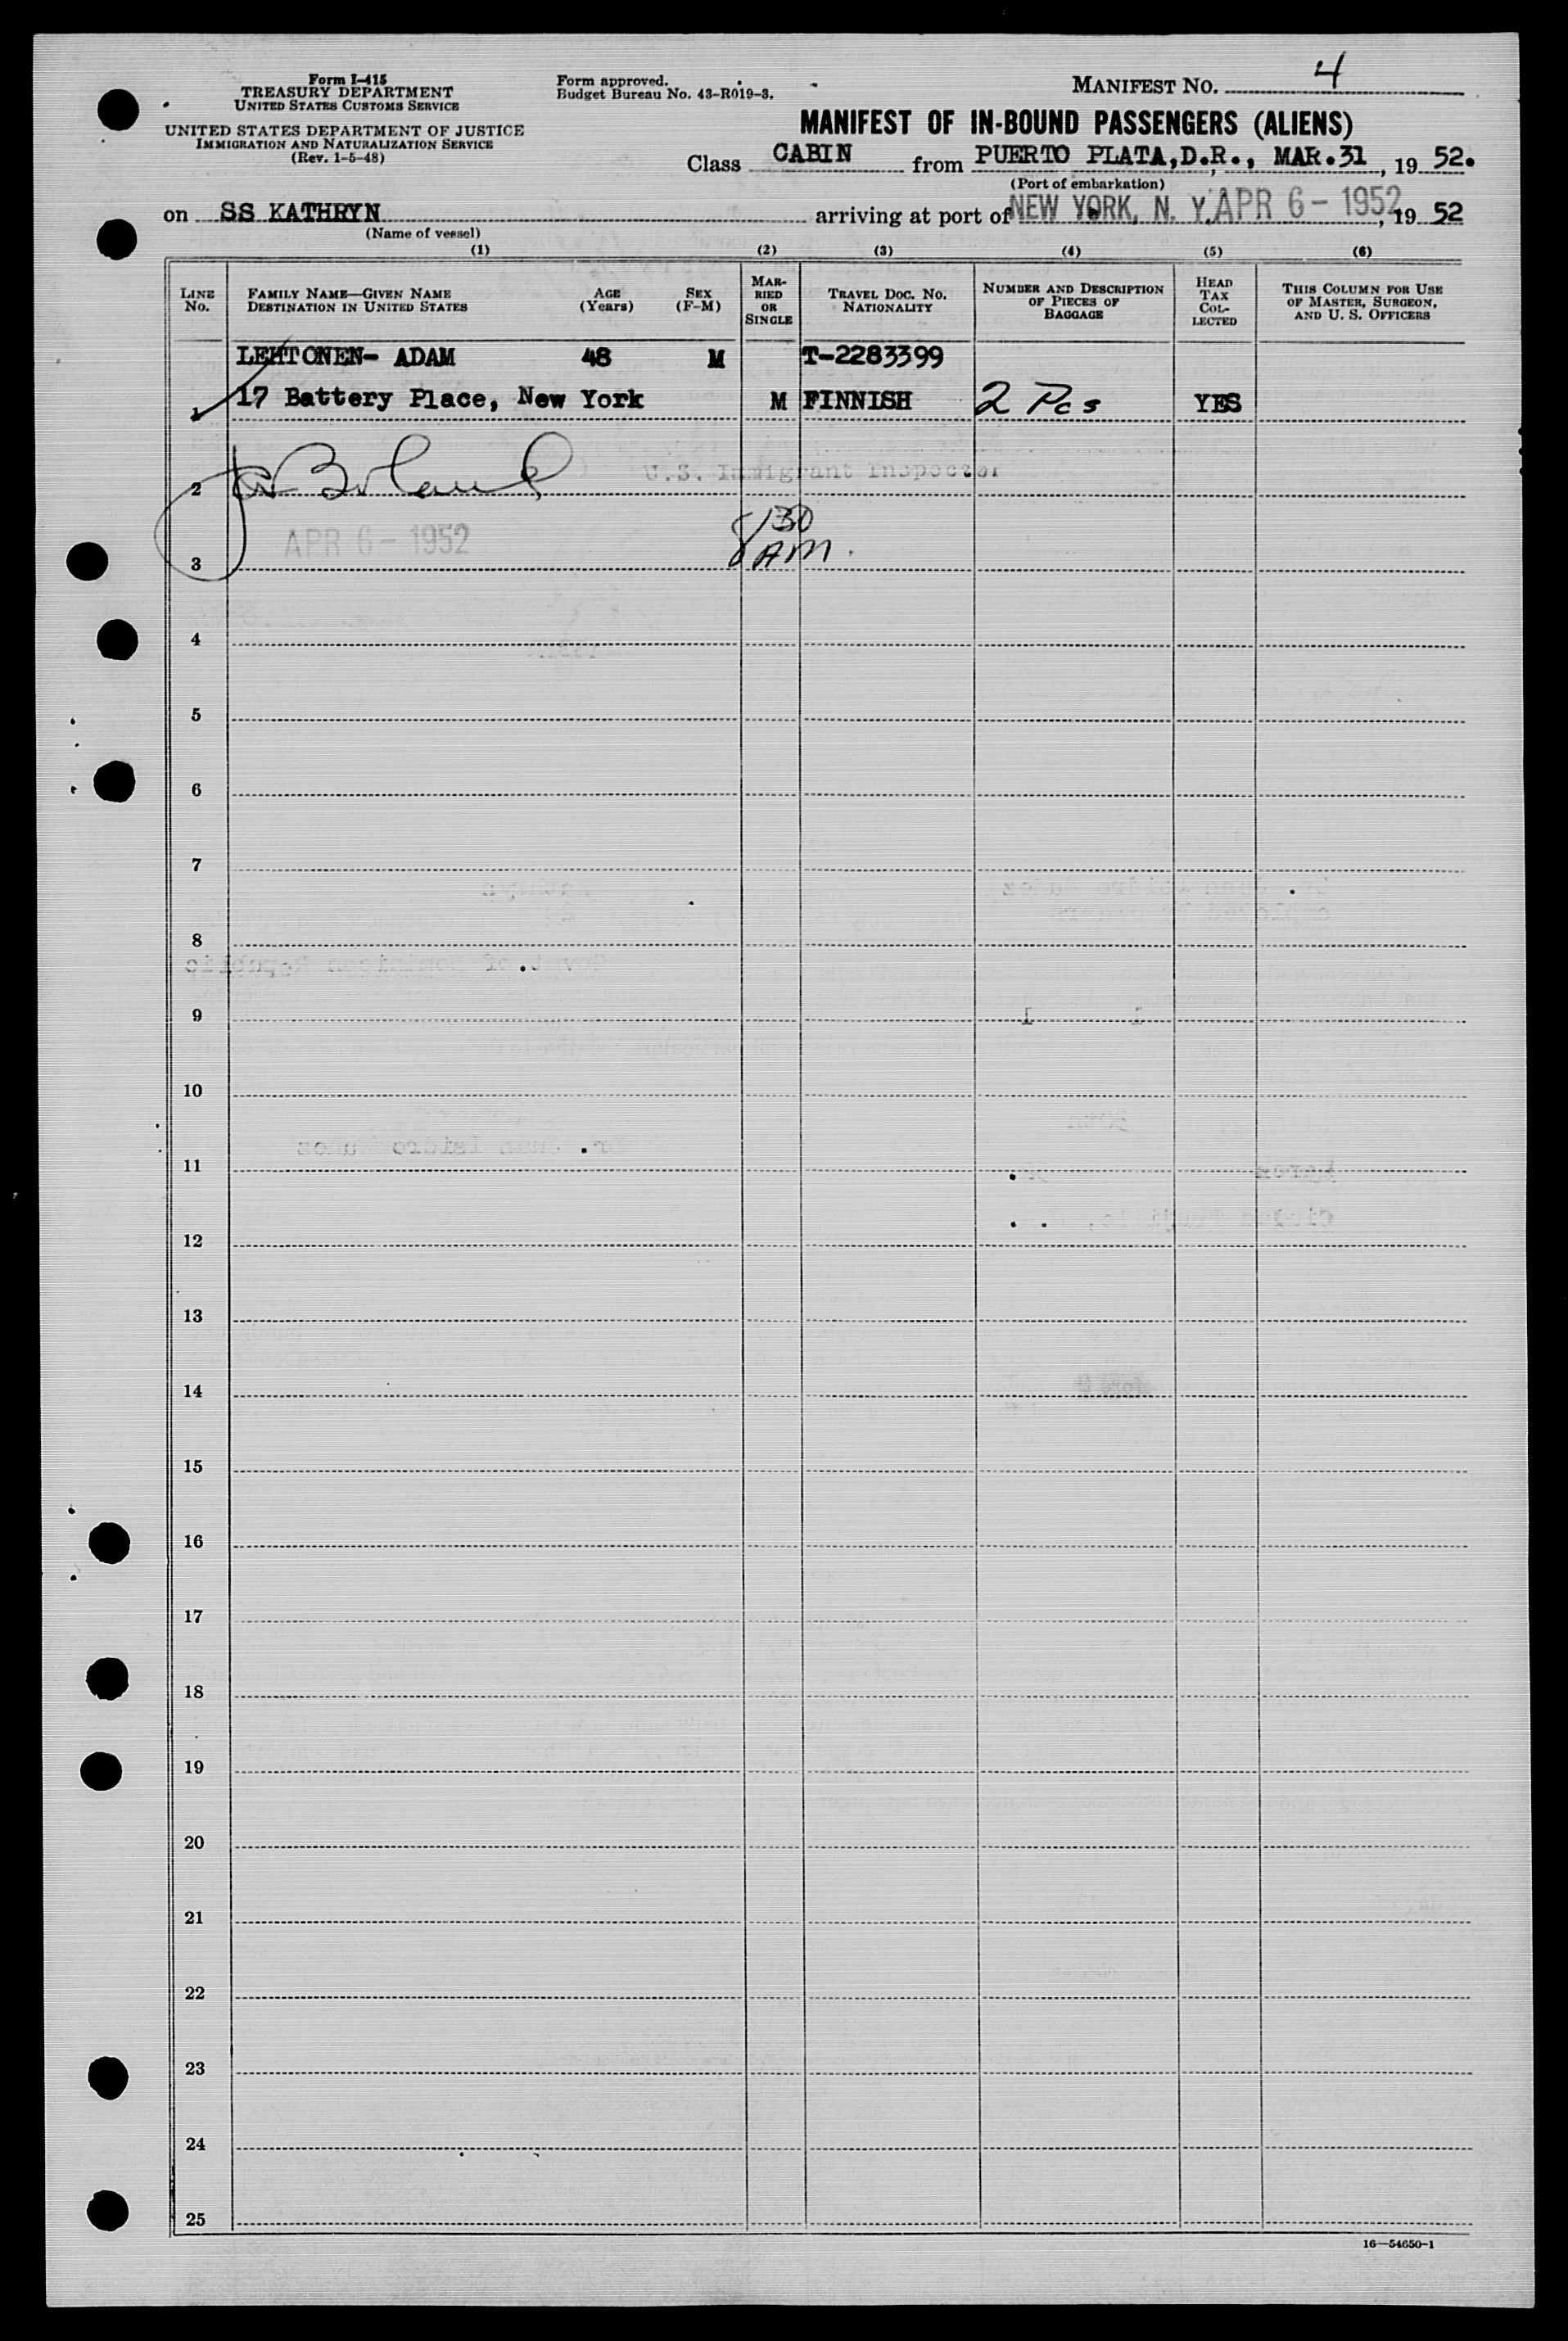 Form I-415
TREASURY DEPARTMENT
UNITED STATES CUSTOMS SERVICE
UNITED STATES DEPARTMENT OF JUSTICE
IMMIGRATION AND NATURALIZATION SERVICE
(Rev. 1-5-48)
Form approved.
Budget Bureau No. 43-R019-3.
MANIFEST NO. 4
MANIFEST OF IN-BOUND PASSENGERS (ALIENS)
Class CABIN from PUERTO PLATA, D.R., MAR. 31, 19 52.
(Port of embarkation)
on SS KATHRYN arriving at port of NEW YORK, N. Y. APR 6 - 1952, 19 52
(Name of vessel)
(1) (2) (3) (4) (5) (6)
LINE No. FAMILY NAME—GIVEN NAME DESTINATION IN UNITED STATES AGE (Years) SEX (F-M) MARRIED OR SINGLE TRAVEL DOC. NO. NATIONALITY NUMBER AND DESCRIPTION OF PIECES OF BAGGAGE HEAD TAX COLLECTED THIS COLUMN FOR USE OF MASTER, SURGEON, AND U. S. OFFICERS
LEHTONEN- ADAM 48 M T-2283399
1 17 Battery Place, New York M FINNISH 2 Pcs YES
2 U.S. Immigrant Inspector
APR 6 - 1952 8/30
3 AM.
4
5
6
7
8
9
10
11
12
13
14
15
16
17
18
19
20
21
22
23
24
25
16—54650-1